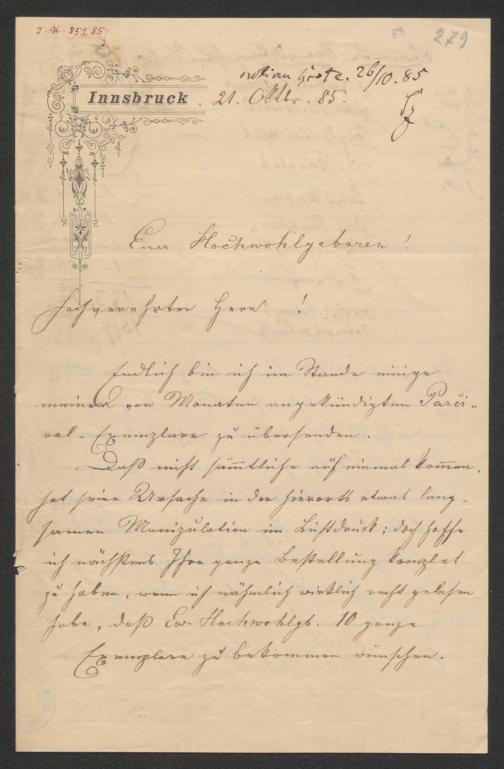 J. N. 85285
279
Innsbruck. 21. Oktbr. 85.
26/10. 85
Euer Hochwohlgeboren!
Hochverehrter Herr!
Endlich bin ich im Stande einige
meiner vor Monaten angekündigten Parci-
val-Exemplare zu übersenden.
Daß nicht sämmtliche auf einmal kommen,
hat seine Ursache in der hierorts etwas lang-
samen Manipulation im Lichtdruck; doch hoffe
ich nächstens Ihre ganze Bestellung komplet
zu haben, wenn ich nähmlich wirklich recht gelesen
habe, daß Ew. Hochwohlgb. 10 ganze
Exemplare zu bekommen wünschen.